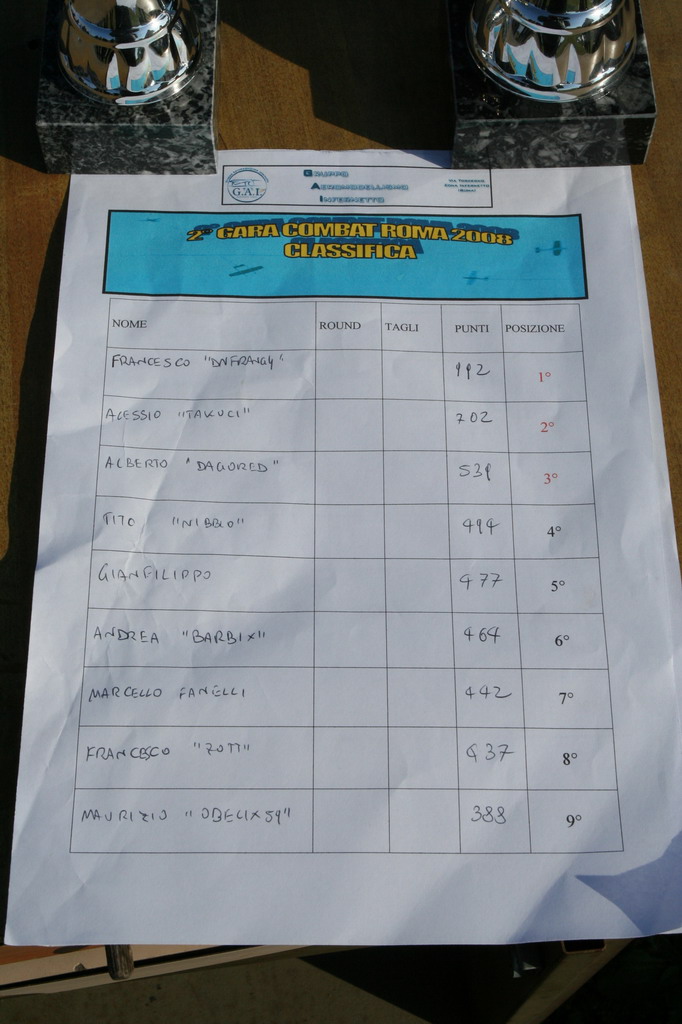 G.A.I.
GRUPPO
AEROMODELLISMO
INFERNETTO
2° GARA COMBAT ROMA 2008
CLASSIFICA
NOME ROUND TAGLI PUNTI POSIZIONE
FRANCESCO 992 1°
ALESSIO "TAKUCI" 702 2°
ALBERTO "DAGORED" 539 3°
TITO "NIBBIO" 494 4°
GIANFILIPPO 477 5°
ANDREA "BARBIX" 464 6°
MARCELLO FANELLI 442 7°
FRANCESCO "ZOTT" 437 8°
MAURIZIO "OBELIX59" 388 9°